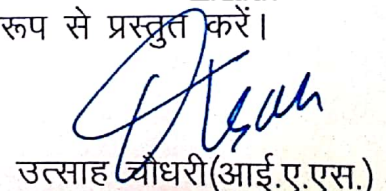 रूप से प्रस्तुत करें।
उत्साह चौधरी(आई.ए.एस.)